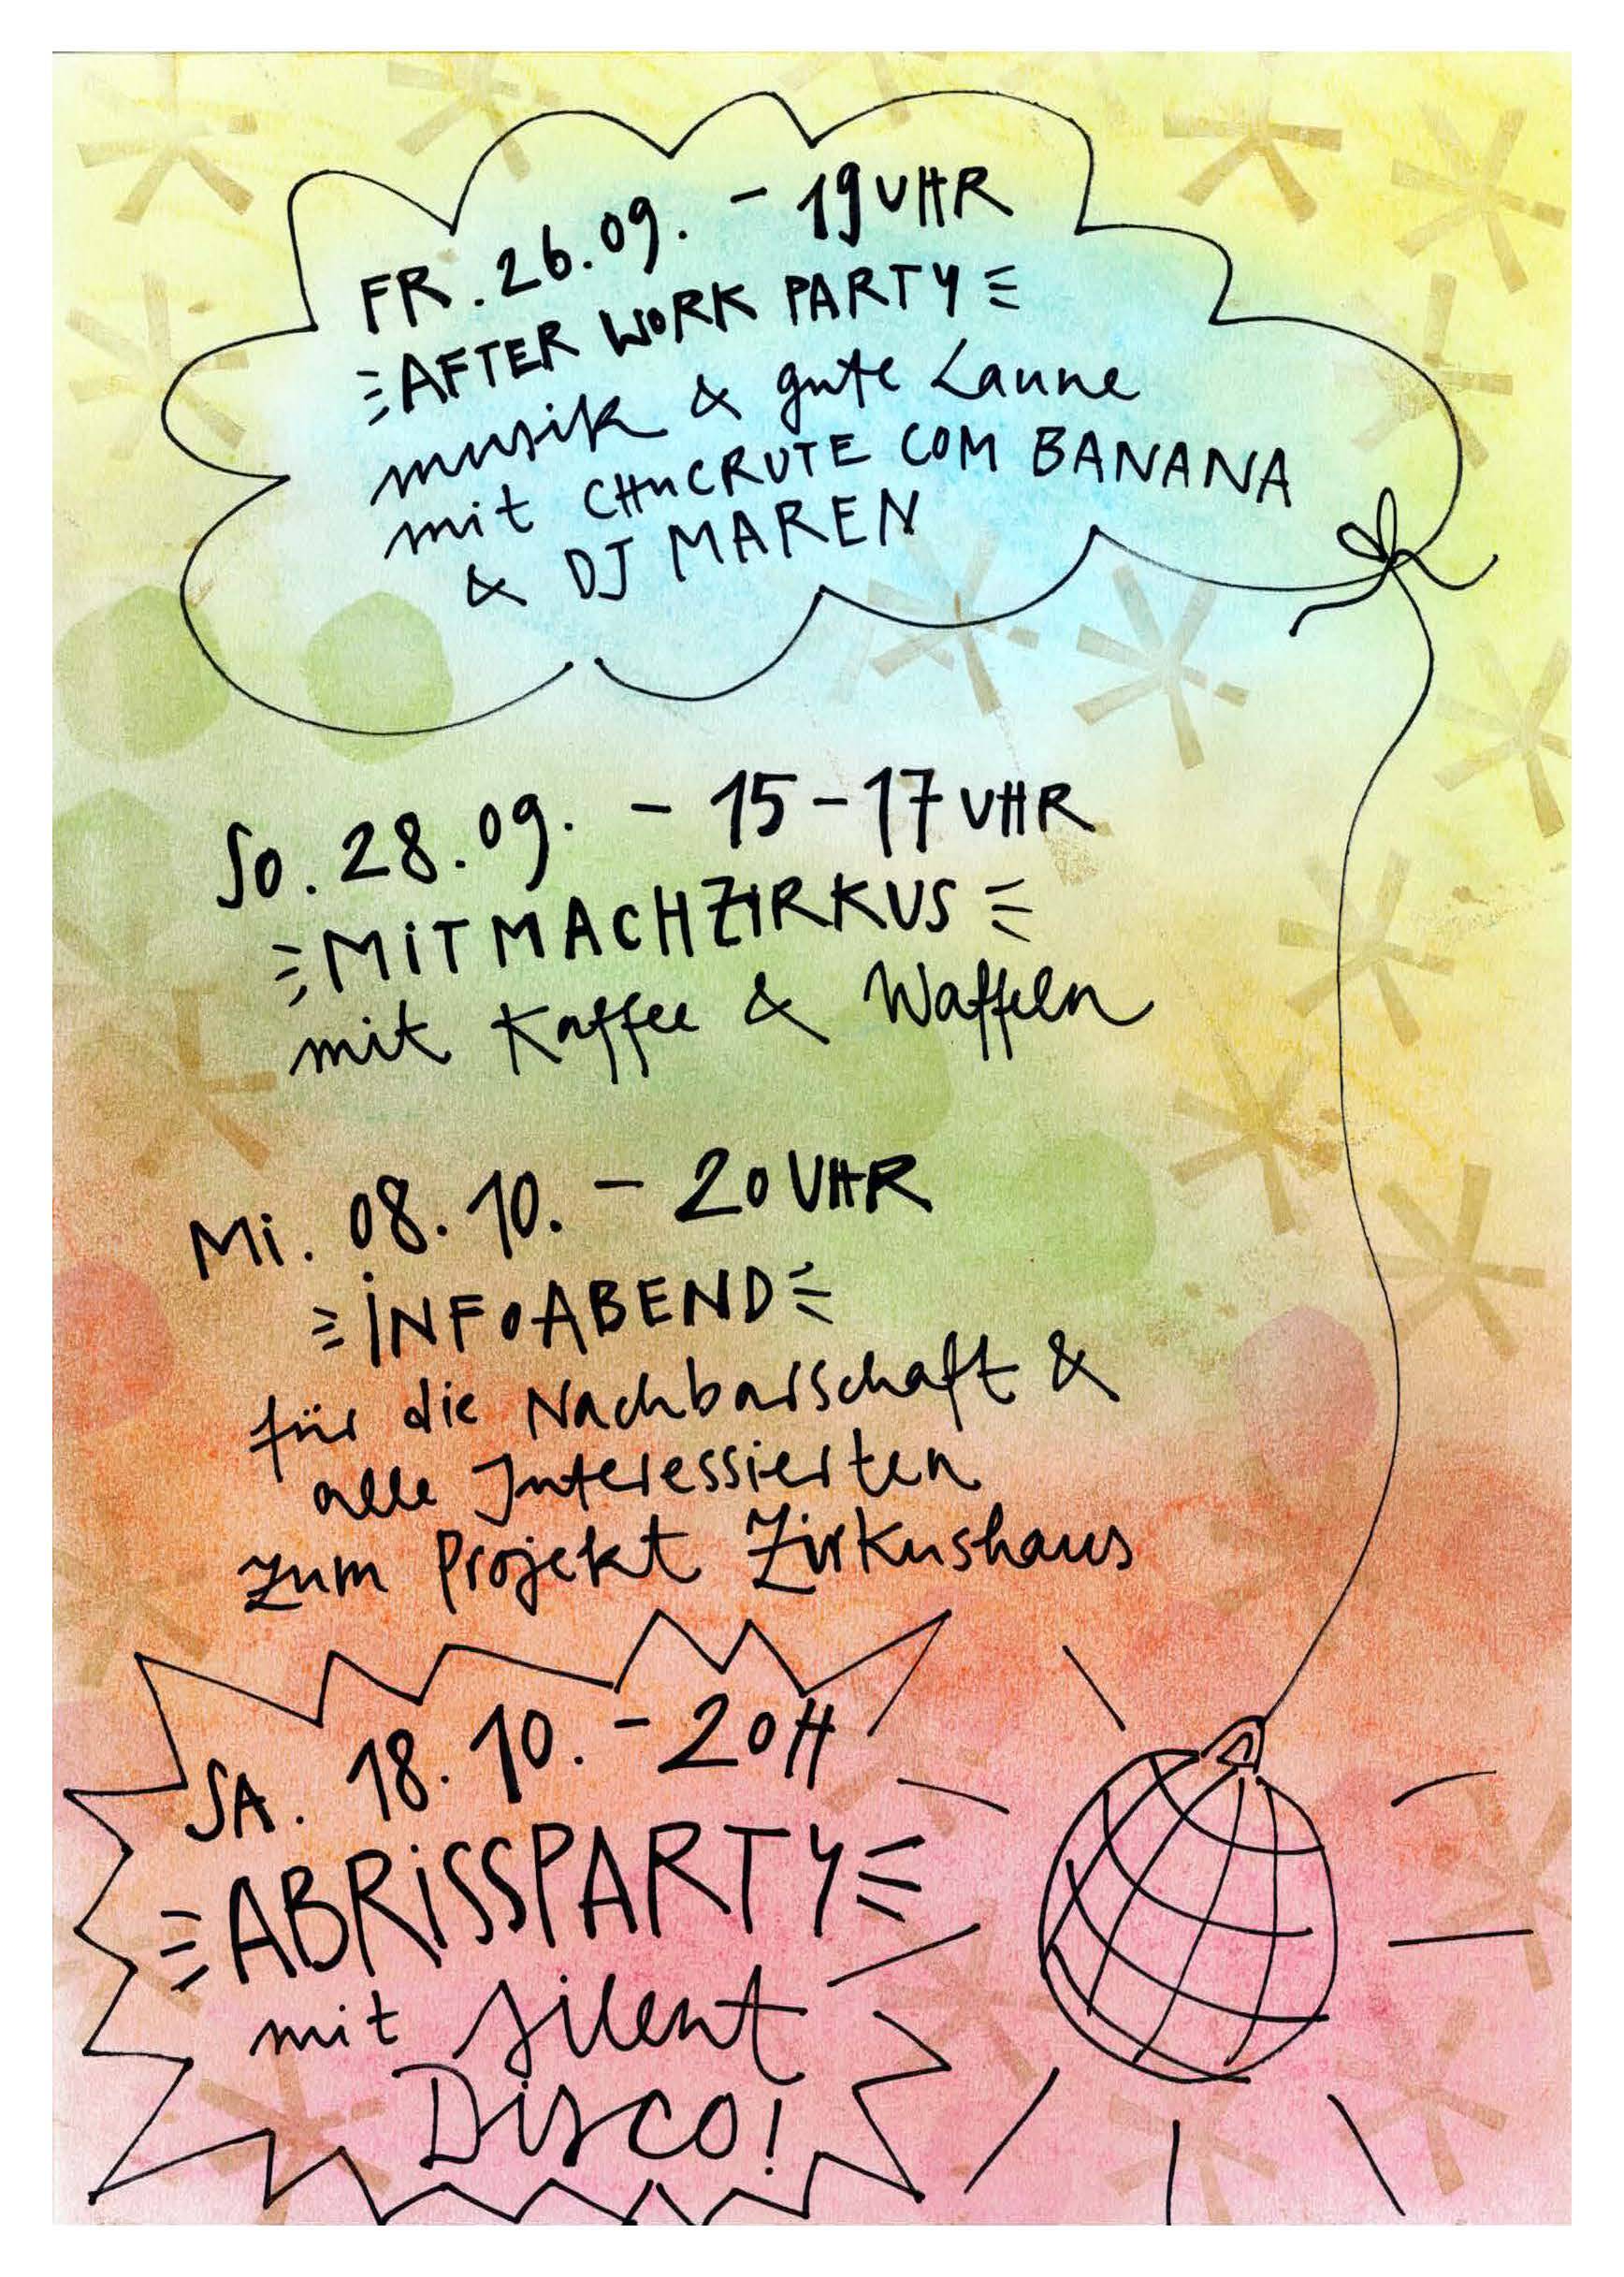 FR. 26.09. - 19 UHR
AFTER WORK PARTY
musik & gute Laune
mit CHUCRUTE COM BANANA
& DJ MAREN
So. 28.09. - 15-17 UHR
MiTMACHZIRKUS
mit Kaffee & Waffeln
Mi. 08.10. - 20 UHR
iNFOABEND
für die Nachbarschaft &
alle Interessierten
zum Projekt Zirkushaus
SA. 18.10. - 20H
ABRiSSPARTY
mit silent
Disco!